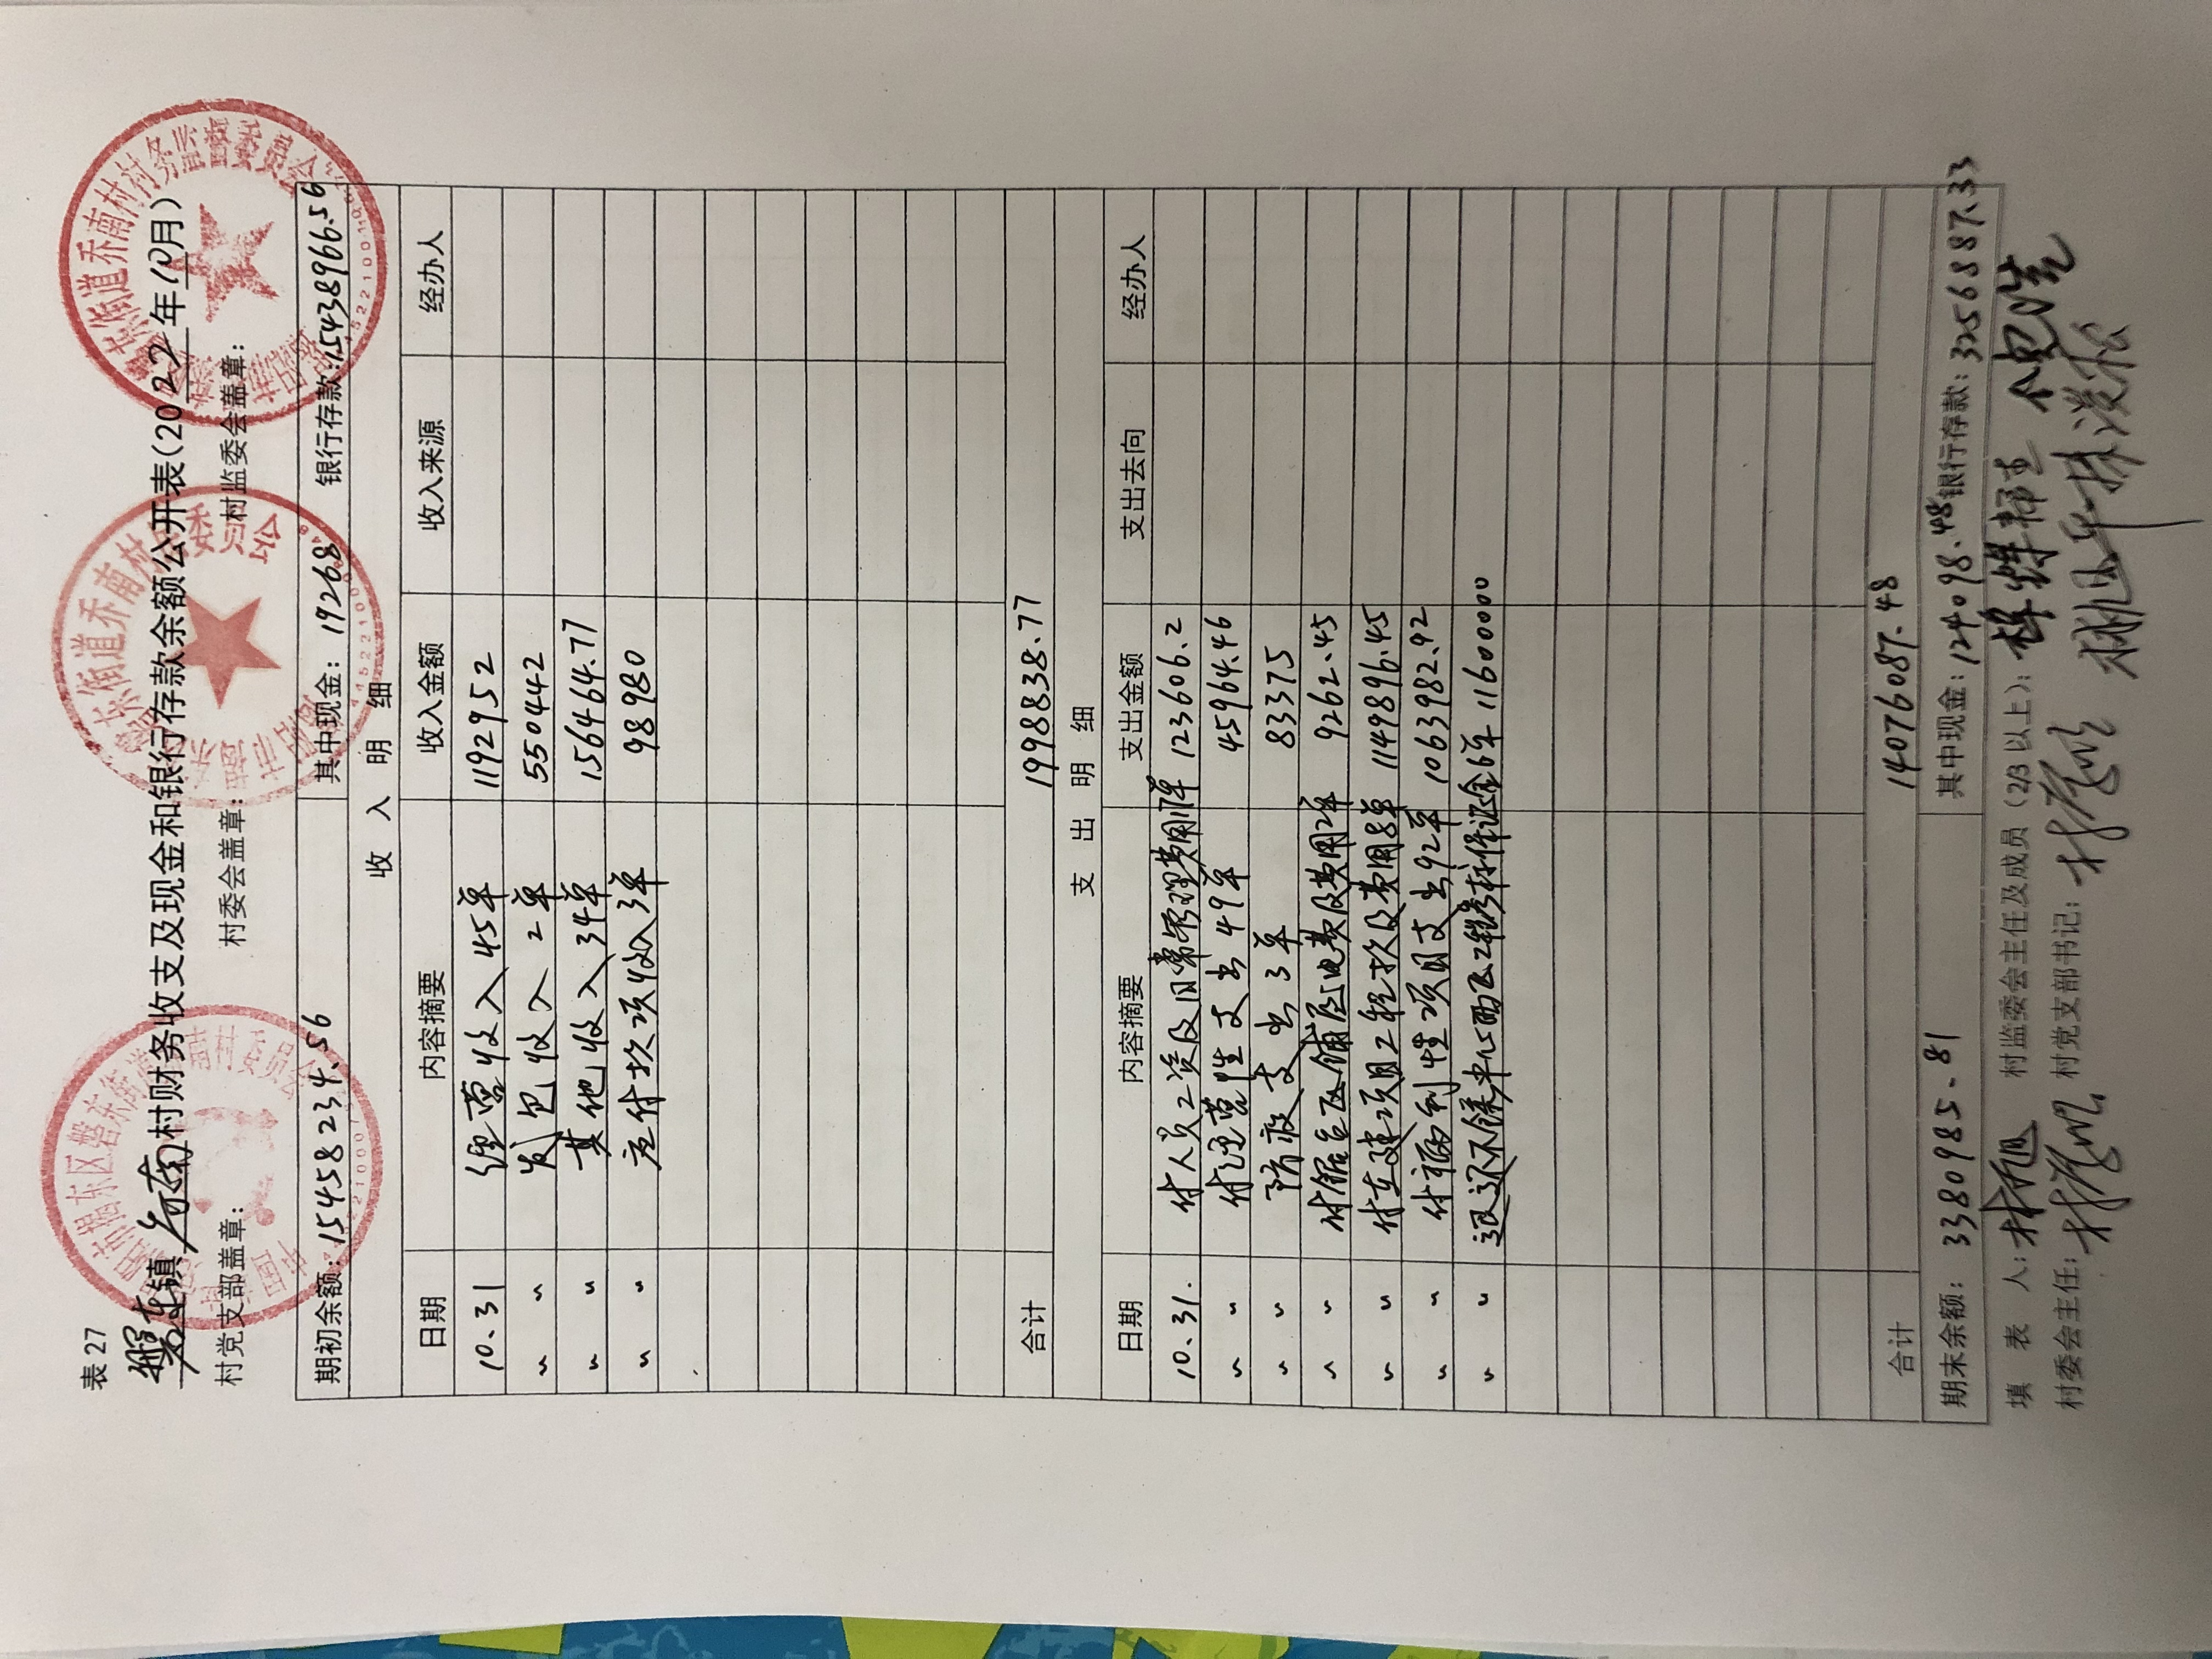 表 27
磐东镇乔南村财务收支及现金和银行存款余额公开表(2022年10月)
村党支部盖章: 村委会盖章: 村监委会盖章:
期初余额:15458234.56 其中现金:19268 银行存款:15438966.56
收 入 明 细
日期 内容摘要 收入金额 收入来源 经办人
10.31 经营收入45单 1192952
〃 〃 发包收入2单 550442
〃 〃 其他收入34单 156464.77
〃 〃 应付款项收入3单 98980
合计 1998838.77
支 出 明 细
日期 内容摘要 支出金额 支出去向 经办人
10.31. 付人员工资及日常管理费用17单 123606.2
〃 〃 付经营性支出49单 45964.46
〃 〃 防疫支出3单 83375
〃 〃 付 区铺 电费及费用2单 9262.45
〃 〃 付在建项目工程款及费用8单 1149896.45
〃 〃 付福利性项目支出92单 1063982.92
〃 〃 退还 工程投标保证金6单 11600000
合计 14076087.48
期末余额: 3380985.81 其中现金:124098.48 银行存款:3256887.33
填 表 人:林旭 村监委会主任及成员(2/3以上):
村委会主任: 村党支部书记:
乔南村村务监督委员会